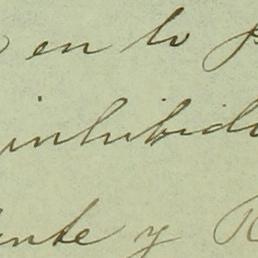 en lo p
inhibido
ente y R